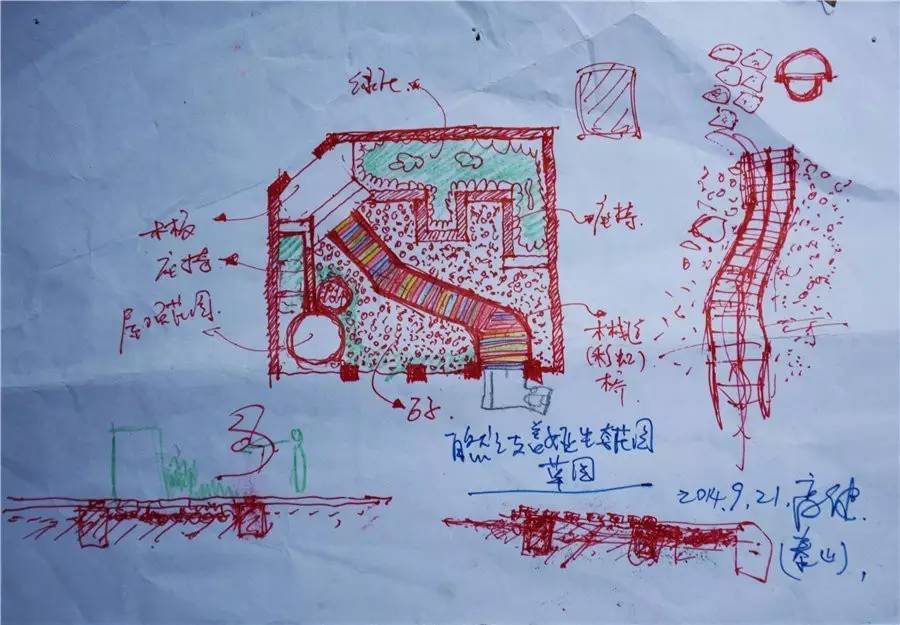 绿化
木板
座椅
座椅
屋顶花园
木栈道
(彩虹)
桥
石子
自然之友盖娅生态花园
草图
2014.9.21.